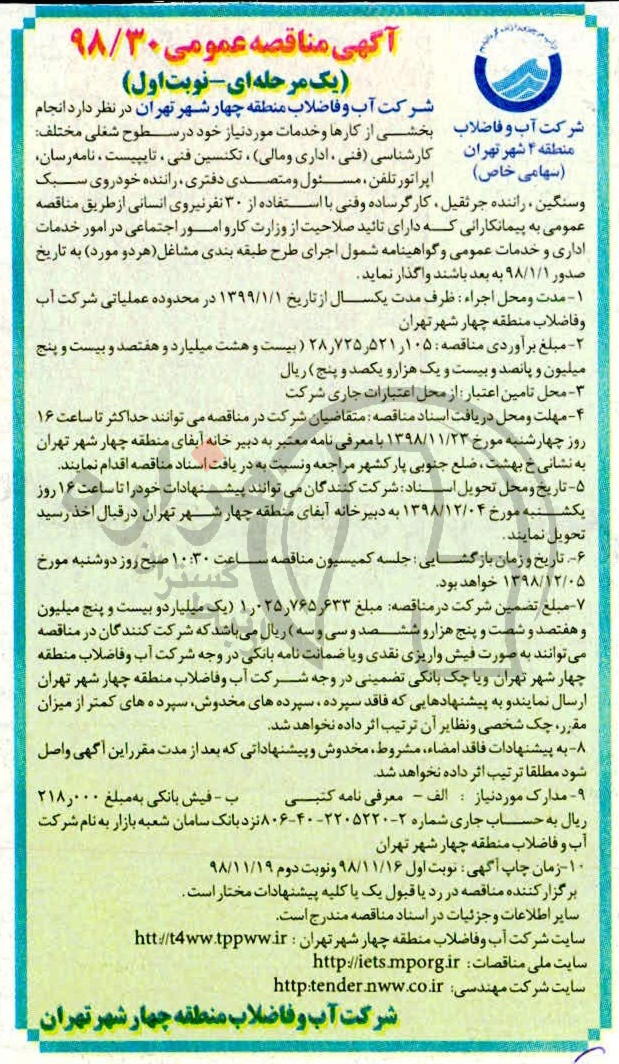 آگهی مناقصه عمومی ۹۸/۳۰
(یک مرحله‌ای-نوبت اول)
شرکت آب و فاضلاب
منطقه ۴ شهر تهران
(سهامی خاص)
شرکت آب و فاضلاب منطقه چهار شهر تهران در نظر دارد انجام
بخشی از کارها و خدمات مورد نیاز خود در سطوح شغلی مختلف:
کارشناسی (فنی ، اداری و مالی) ، تکنسین فنی ، تایپیست ، نامه رسان،
اپراتور تلفن ، مسئول و متصدی دفتری ، راننده خودروی سبک
و سنگین ، راننده جرثقیل ، کارگر ساده و فنی با استفاده از ۳۰ نفر نیروی انسانی از طریق مناقصه
عمومی به پیمانکارانی که دارای تائید صلاحیت از وزارت کار و امور اجتماعی در امور خدمات
اداری و خدمات عمومی و گواهینامه شمول اجرای طرح طبقه بندی مشاغل (هر دو مورد) به تاریخ
صدور ۹۸/۱/۱ به بعد باشند واگذار نماید .
۱-مدت و محل اجراء : ظرف مدت یکسال از تاریخ ۱۳۹۹/۱/۱ در محدوده عملیاتی شرکت آب
و فاضلاب منطقه چهار شهر تهران
۲-مبلغ برآوردی مناقصه : ۲۸٫۷۲۵٫۵۲۱٫۱۰۵ ( بیست و هشت میلیارد و هفتصد و بیست و پنج
میلیون و پانصد و بیست و یک هزار و یکصد و پنج ) ریال
۳-محل تامین اعتبار : از محل اعتبارات جاری شرکت
۴-مهلت و محل دریافت اسناد مناقصه : متقاضیان شرکت در مناقصه می توانند حداکثر تا ساعت ۱۶
روز چهارشنبه مورخ ۱۳۹۸/۱۱/۲۳ با معرفی نامه معتبر به دبیر خانه آبفای منطقه چهار شهر تهران
به نشانی خ بهشت ، ضلع جنوبی پارکشهر مراجعه و نسبت به دریافت اسناد مناقصه اقدام نمایند.
۵-تاریخ و محل تحویل اسناد : شرکت کنندگان می توانند پیشنهادات خود را تا ساعت ۱۶ روز
یکشنبه مورخ ۱۳۹۸/۱۲/۰۴ به دبیرخانه آبفای منطقه چهار شهر تهران درقبال اخذ رسید
تحویل نمایند .
۶-. تاریخ و زمان بازگشایی : جلسه کمیسیون مناقصه ساعت ۱۰:۳۰ صبح روز دوشنبه مورخ
۱۳۹۸/۱۲/۰۵ خواهد بود.
۷-مبلغ تضمین شرکت در مناقصه: مبلغ ۱٫۰۲۵٫۷۶۵٫۶۳۳ (یک میلیارد و بیست و پنج میلیون
و هفتصد و شصت و پنج هزار و ششصد و سی و سه) ریال می باشد که شرکت کنندگان در مناقصه
می توانند به صورت فیش واریزی نقدی و یا ضمانت نامه بانکی در وجه شرکت آب و فاضلاب منطقه
چهار شهر تهران و یا چک بانکی تضمینی در وجه شرکت آب و فاضلاب منطقه چهار شهر تهران
ارسال نمایند و به پیشنهادهایی که فاقد سپرده ، سپرده های مخدوش، سپرده های کمتر از میزان
مقرر، چک شخصی و نظایر آن ترتیب اثر داده نخواهد شد.
۸-به پیشنهادات فاقد امضاء، مشروط، مخدوش و پیشنهاداتی که بعد از مدت مقرر این آگهی واصل
شود مطلقا ترتیب اثر داده نخواهد شد.
۹-مدارک مورد نیاز : الف - معرفی نامه کتبی ب - فیش بانکی به مبلغ ۲۱۸٫۰۰۰
ریال به حساب جاری شماره ۲-۲۲۰۵۲۲۰-۴۰-۸۰۶ نزد بانک سامان شعبه بازار به نام شرکت
آب و فاضلاب منطقه چهار شهر تهران
۱۰-زمان چاپ آگهی : نوبت اول ۹۸/۱۱/۱۶ و نوبت دوم ۹۸/۱۱/۱۹
برگزار کننده مناقصه در رد یا قبول یک یا کلیه پیشنهادات مختار است .
سایر اطلاعات و جزئیات در اسناد مناقصه مندرج است.
سایت شرکت آب و فاضلاب منطقه چهار شهر تهران : htt://t4ww.tppww.ir
سایت ملی مناقصات : http://iets.mporg.ir
سایت شرکت مهندسی: http:tender.nww.co.ir
شرکت آب و فاضلاب منطقه چهار شهر تهران